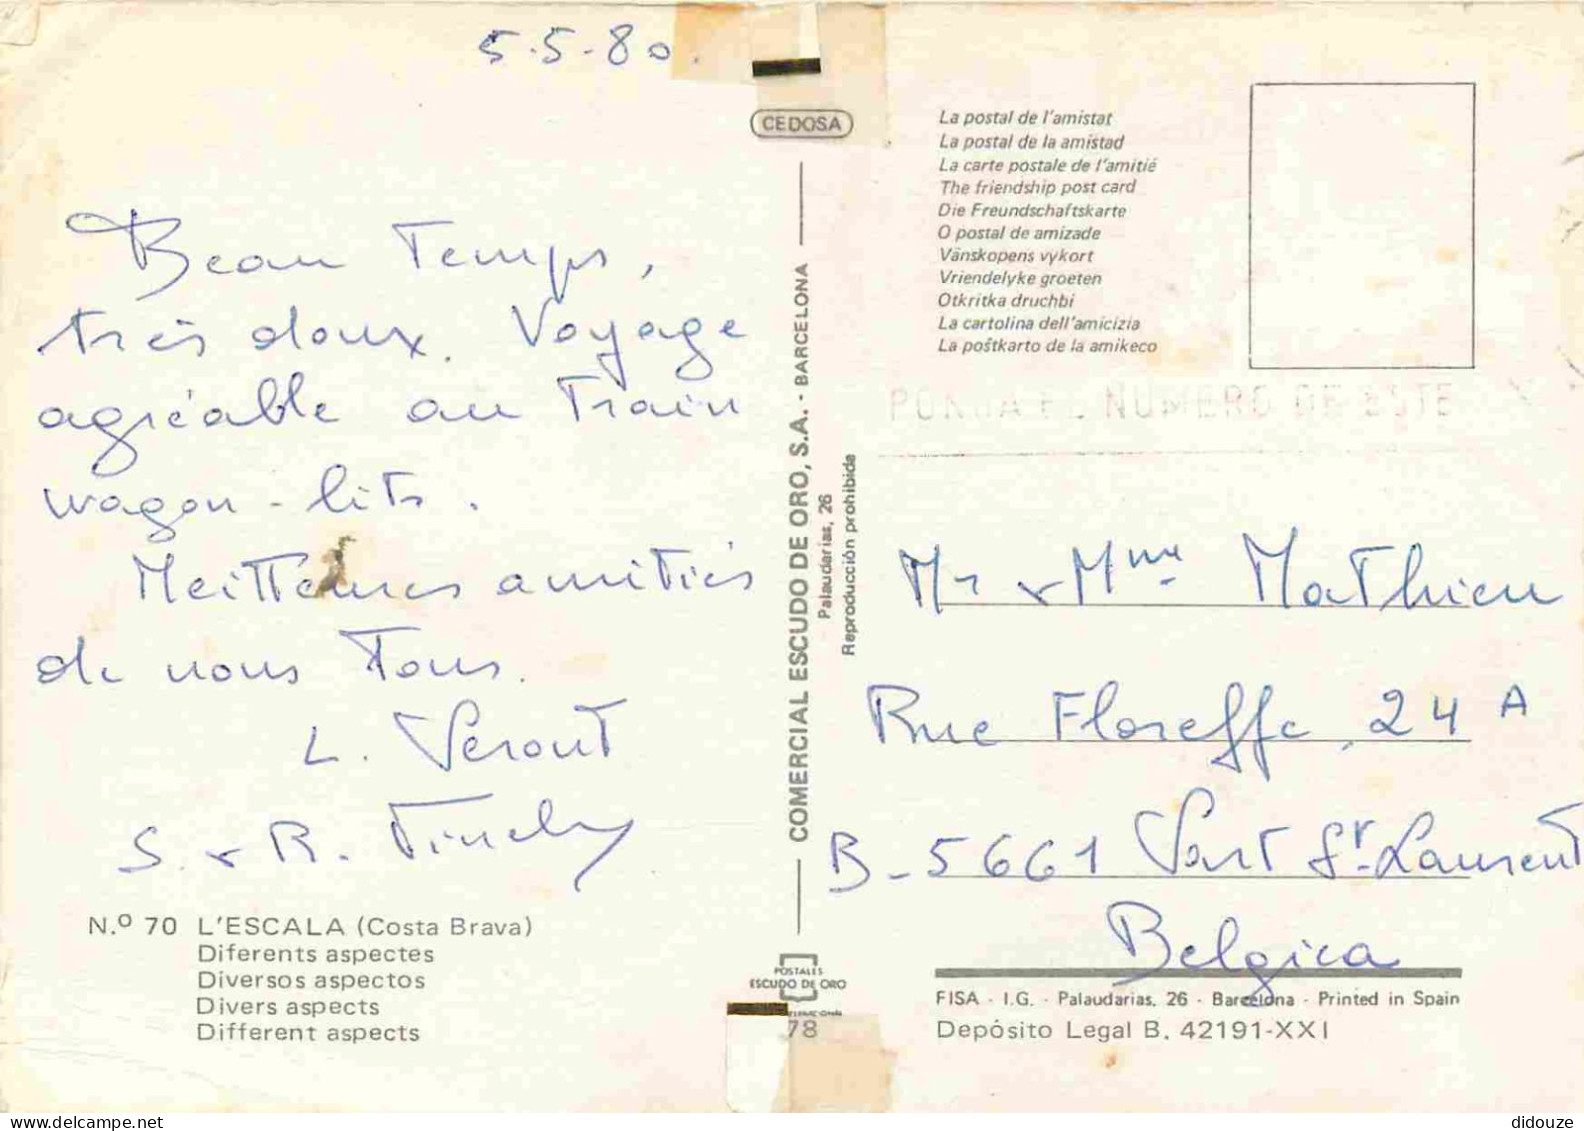 5-5-80.
Beau Temps,
très doux. Voyage
agréable au Train
wagon-lits.
Meilleures amitiés
de nous Tous.
L.
S. & R.
N.º 70 L'ESCALA (Costa Brava)
Diferents aspectes
Diversos aspectos
Divers aspects
Different aspects
CEDOSA
COMERCIAL ESCUDO DE ORO, S.A. - BARCELONA
Palaudarias, 26
Reproducción prohibida
POSTALES
ESCUDO DE ORO
78
La postal de l'amistat
La postal de la amistad
La carte postale de l'amitié
The friendship post card
Die Freundschaftskarte
O postal de amizade
Vänskopens vykort
Vriendelyke groeten
Otkritka druchbi
La cartolina dell'amicizia
La poŝtkarto de la amikeco
PONGA EL NUMERO DE ESTE
Mr & Mme Mathieu
Rue Floreffe, 24 A
B-5661 Sart St-Laurent
Belgica
FISA - I.G. - Palaudarias, 26 - Barcelona - Printed in Spain
Depósito Legal B. 42191-XXI
didouze